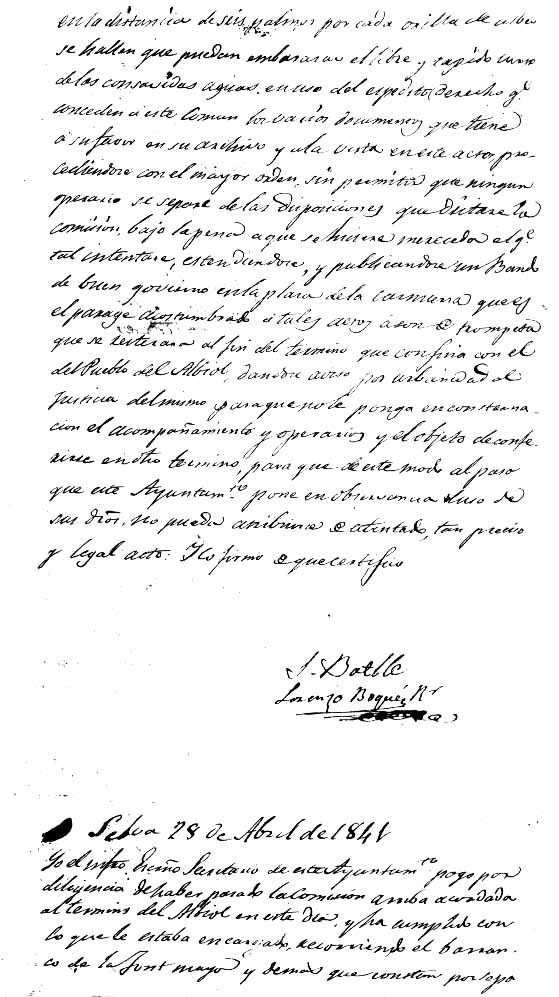 en la distancia de seis palmos por cada orilla de alveo
se hallen que puedan embarasar el libre, y rapido curso
de las consavidas aguas, en uso del expedito derecho qe
conceden á este Comun los varios documentos que tiene
á su favor en su archivo y á la vista en este acto, pro-
cediendose con el mayor orden, sin permitir que ningun
operario se separe de las disposiciones que dictare la
comision, bajo la pena a que se hiciere merecedor el qe
tal intentare, estendiendose, y publicandose un Bando
de buen govierno en la plasa de la que es
el parage acostumbrado á tales actos a son de trompeta
que se reiterará al fin del termino que confina con el
del Pueblo del Albiol, dandose aviso por urbanidad al
Justicia del mismo para que no le ponga en consterna-
cion el acompañamiento y operarios y el objeto de confe-
rirse en otro termino, para que de este modo al paso
que este Ayuntamto pone en observancia el uso de
sus dros, no pueda atribuirse á atentado, tan preciso
y legal acto. Y lo firmo de que certifico
J. Batlle
Lorenzo Boqués
Selva 28 de Abril de 1841
Yo el infro Escño Secretario de este Ayuntamto pongo por
diligencia de haber pasado la Comision arriba acordada
al termino del Albiol en este dia, y ha cumplido con
lo que le estaba encargado, recorriendo el barran-
co de la font mayor y demas que constan por sepa